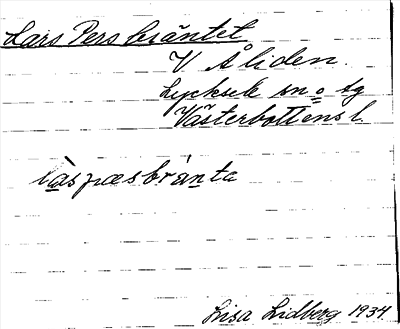 Lars Persbräntet
V Åliden.
Lycksele sn o tg
Västerbottens l.
làspæsbrànta
Lisa Lidberg 1934